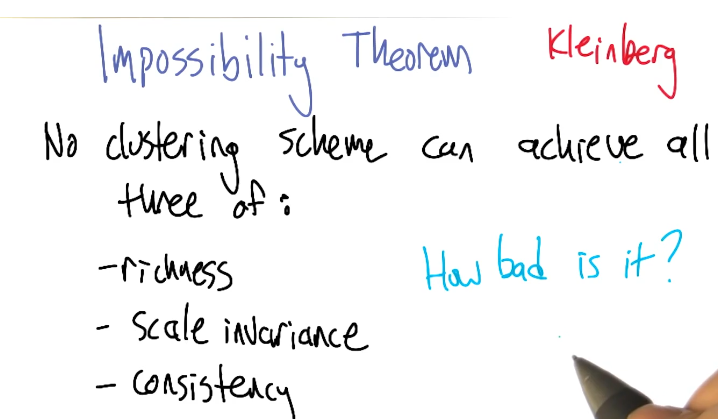 Impossibility Theorem Kleinberg
No clustering scheme can achieve all
three of:
-richness
How bad is it?
- scale invariance
- consistency